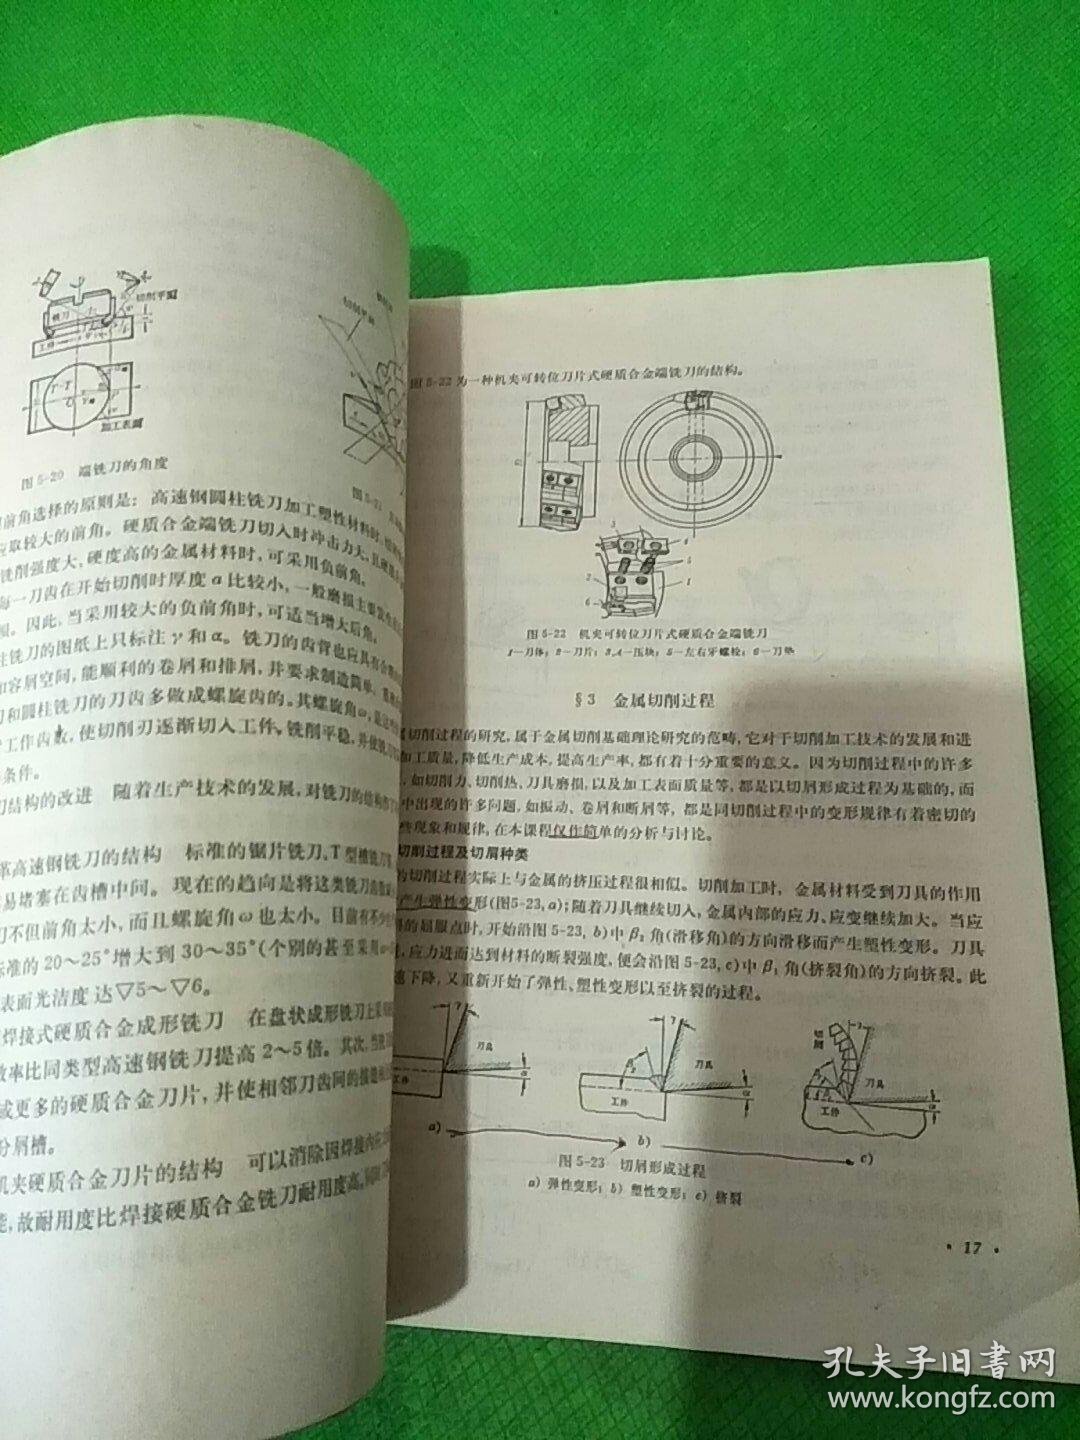 切削平面
铣刀
工件
T-T
加工表面
图5-20 端铣刀的角度
前角选择的原则是：高速钢圆柱铣刀加工塑性材料时，
应取较大的前角。硬质合金端铣刀切入时冲击力大，
铣削强度大，硬度高的金属材料时，可采用负前角。
每一刀齿在开始切削时厚度a比较小，一般磨损主要
因此，当采用较大的负前角时，可适当增大后角。
铣刀的图纸上只标注γ和α。铣刀的齿背也应具有
和容屑空间，能顺利的卷屑和排屑，并要求制造简单，
刀和圆柱铣刀的刀齿多做成螺旋齿的。其螺旋角ω，
工作齿数，使切削刃逐渐切入工件，铣削平稳，
条件。
刀结构的改进 随着生产技术的发展，对铣刀的结构
革高速钢铣刀的结构 标准的锯片铣刀、T型槽铣刀
易堵塞在齿槽中间。现在的趋向是将这类铣刀
刀不但前角太小，而且螺旋角ω也太小。目前有不少
标准的20～25°增大到30～35°（个别的甚至采用
表面光洁度达▽5～▽6。
焊接式硬质合金成形铣刀 在盘状成形铣刀上
效率比同类型高速钢铣刀提高2～5倍。其次，
或更多的硬质合金刀片，并使相邻刀齿间的
分屑槽。
机夹硬质合金刀片的结构 可以消除因焊接
能，故耐用度比焊接硬质合金铣刀耐用度高，
切削平面
图5-21
图5-22为一种机夹可转位刀片式硬质合金端铣刀的结构。
图5-22 机夹可转位刀片式硬质合金端铣刀
1—刀体；2—刀片；3、4—压块；5—左右牙螺栓；6—刀垫
§3 金属切削过程
切削过程的研究，属于金属切削基础理论研究的范畴，它对于切削加工技术的发展和进
加工质量，降低生产成本，提高生产率，都有着十分重要的意义。因为切削过程中的许多
，如切削力、切削热、刀具磨损，以及加工表面质量等，都是以切屑形成过程为基础的，而
中出现的许多问题，如振动、卷屑和断屑等，都是同切削过程中的变形规律有着密切的
些现象和规律，在本课程仅作简单的分析与讨论。
切削过程及切屑种类
的切削过程实际上与金属的挤压过程很相似。切削加工时，金属材料受到刀具的作用
产生弹性变形（图5-23，a）；随着刀具继续切入，金属内部的应力、应变继续加大。当应
的屈服点时，开始沿图5-23，b）中β₂角（滑移角）的方向滑移而产生塑性变形。刀具
，应力进而达到材料的断裂强度，便会沿图5-23，c）中β₁角（挤裂角）的方向挤裂。此
速下降，又重新开始了弹性、塑性变形以至挤裂的过程。
刀具
工件
a）
刀具
工件
b）
切屑
刀具
工件
c）
图5-23 切屑形成过程
a）弹性变形；b）塑性变形；c）挤裂
· 17 ·
孔夫子旧書网
www.kongfz.com